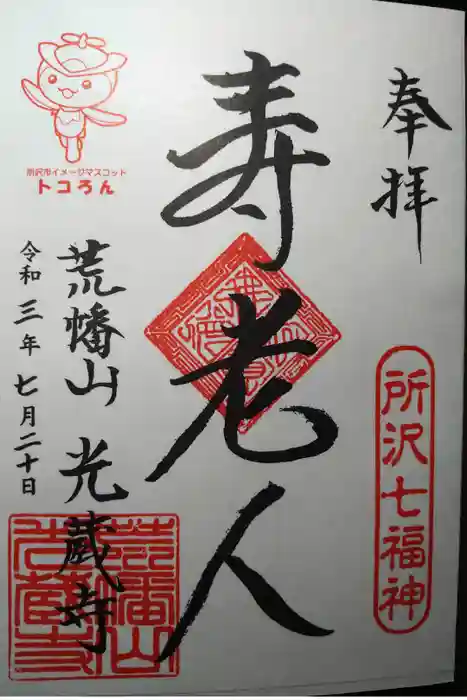 奉拝
所沢七福神
寿老人
荒幡山 光蔵寺
荒幡山
光蔵寺
令和三年七月二十日
所沢市イメージマスコット
トコろん